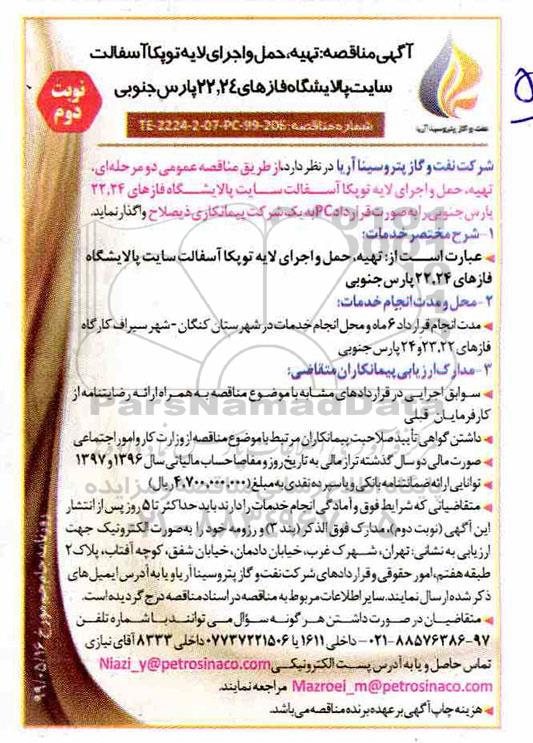 آگهی مناقصه: تهیه، حمل و اجرای لایه توپکا آسفالت
سایت پالایشگاه فازهای ۲۲,۲۴ پارس جنوبی
نوبت
دوم
نفت و گاز پتروسینا آریا
شماره مناقصه: TE-2224-2-07-PC-99-205
شرکت نفت و گاز پتروسینا آریا در نظر دارد، از طریق مناقصه عمومی دو مرحله‌ای،
تهیه، حمل و اجرای لایه توپکا آسفالت سایت پالایشگاه فازهای ۲۲,۲۴
پارس جنوبی را به صورت قرارداد PC به یک شرکت پیمانکاری ذیصلاح واگذار نماید.
۱- شرح مختصر خدمات:
عبارت است از: تهیه، حمل و اجرای لایه توپکا آسفالت سایت پالایشگاه
فازهای ۲۲,۲۴ پارس جنوبی
۲- محل و مدت انجام خدمات:
مدت انجام قرارداد ۶ ماه و محل انجام خدمات در شهرستان کنگان - شهر سیراف کارگاه
فازهای ۲۳,۲۲ و ۲۴ پارس جنوبی
۳- مدارک ارزیابی پیمانکاران متقاضی:
سوابق اجرایی در قراردادهای مشابه با موضوع مناقصه به همراه ارائه رضایتنامه از
کارفرمایان قبلی
داشتن گواهی تأیید صلاحیت پیمانکاران مرتبط با موضوع مناقصه از وزارت کار و امور اجتماعی
صورت مالی دو سال گذشته تراز مالی به تاریخ روز و مفاصا حساب مالیاتی سال ۱۳۹۶ و ۱۳۹۷
توانایی ارائه ضمانتنامه بانکی و یا سپرده نقدی به مبلغ (۴,۷۰۰,۰۰۰,۰۰۰ ریال)
متقاضیانی که شرایط فوق و آمادگی انجام خدمات را دارند باید حداکثر تا ۵ روز پس از انتشار
این آگهی (نوبت دوم)، مدارک فوق الذکر (بند ۳) و رزومه خود را به صورت الکترونیک جهت
ارزیابی به نشانی: تهران، شهرک غرب، خیابان دادمان، خیابان شفق، کوچه آفتاب، پلاک ۲
طبقه هفتم، امور حقوقی و قراردادهای شرکت نفت و گاز پتروسینا آریا و یا به آدرس ایمیل‌های
ذکر شده ارسال نمایند. سایر اطلاعات مربوط به مناقصه در اسناد مناقصه درج گردیده است.
متقاضیان در صورت داشتن هر گونه سؤال می توانند با شماره تلفن
۰۲۱-۸۸۵۷۶۳۸۶-۹۷ داخلی ۱۶۱۱ یا ۰۷۷۳۷۲۲۱۵۰۶ داخلی ۸۳۳۳ آقای نیازی
تماس حاصل و یا به آدرس پست الکترونیکی Niazi_y@petrosinaco.com
Mazroei_m@petrosinaco.com مراجعه نمایند.
هزینه چاپ آگهی بر عهده برنده مناقصه می‌باشد.
روزنامه جام جم مورخ ۹۹/۰۵/۱۶
ParsNamadData